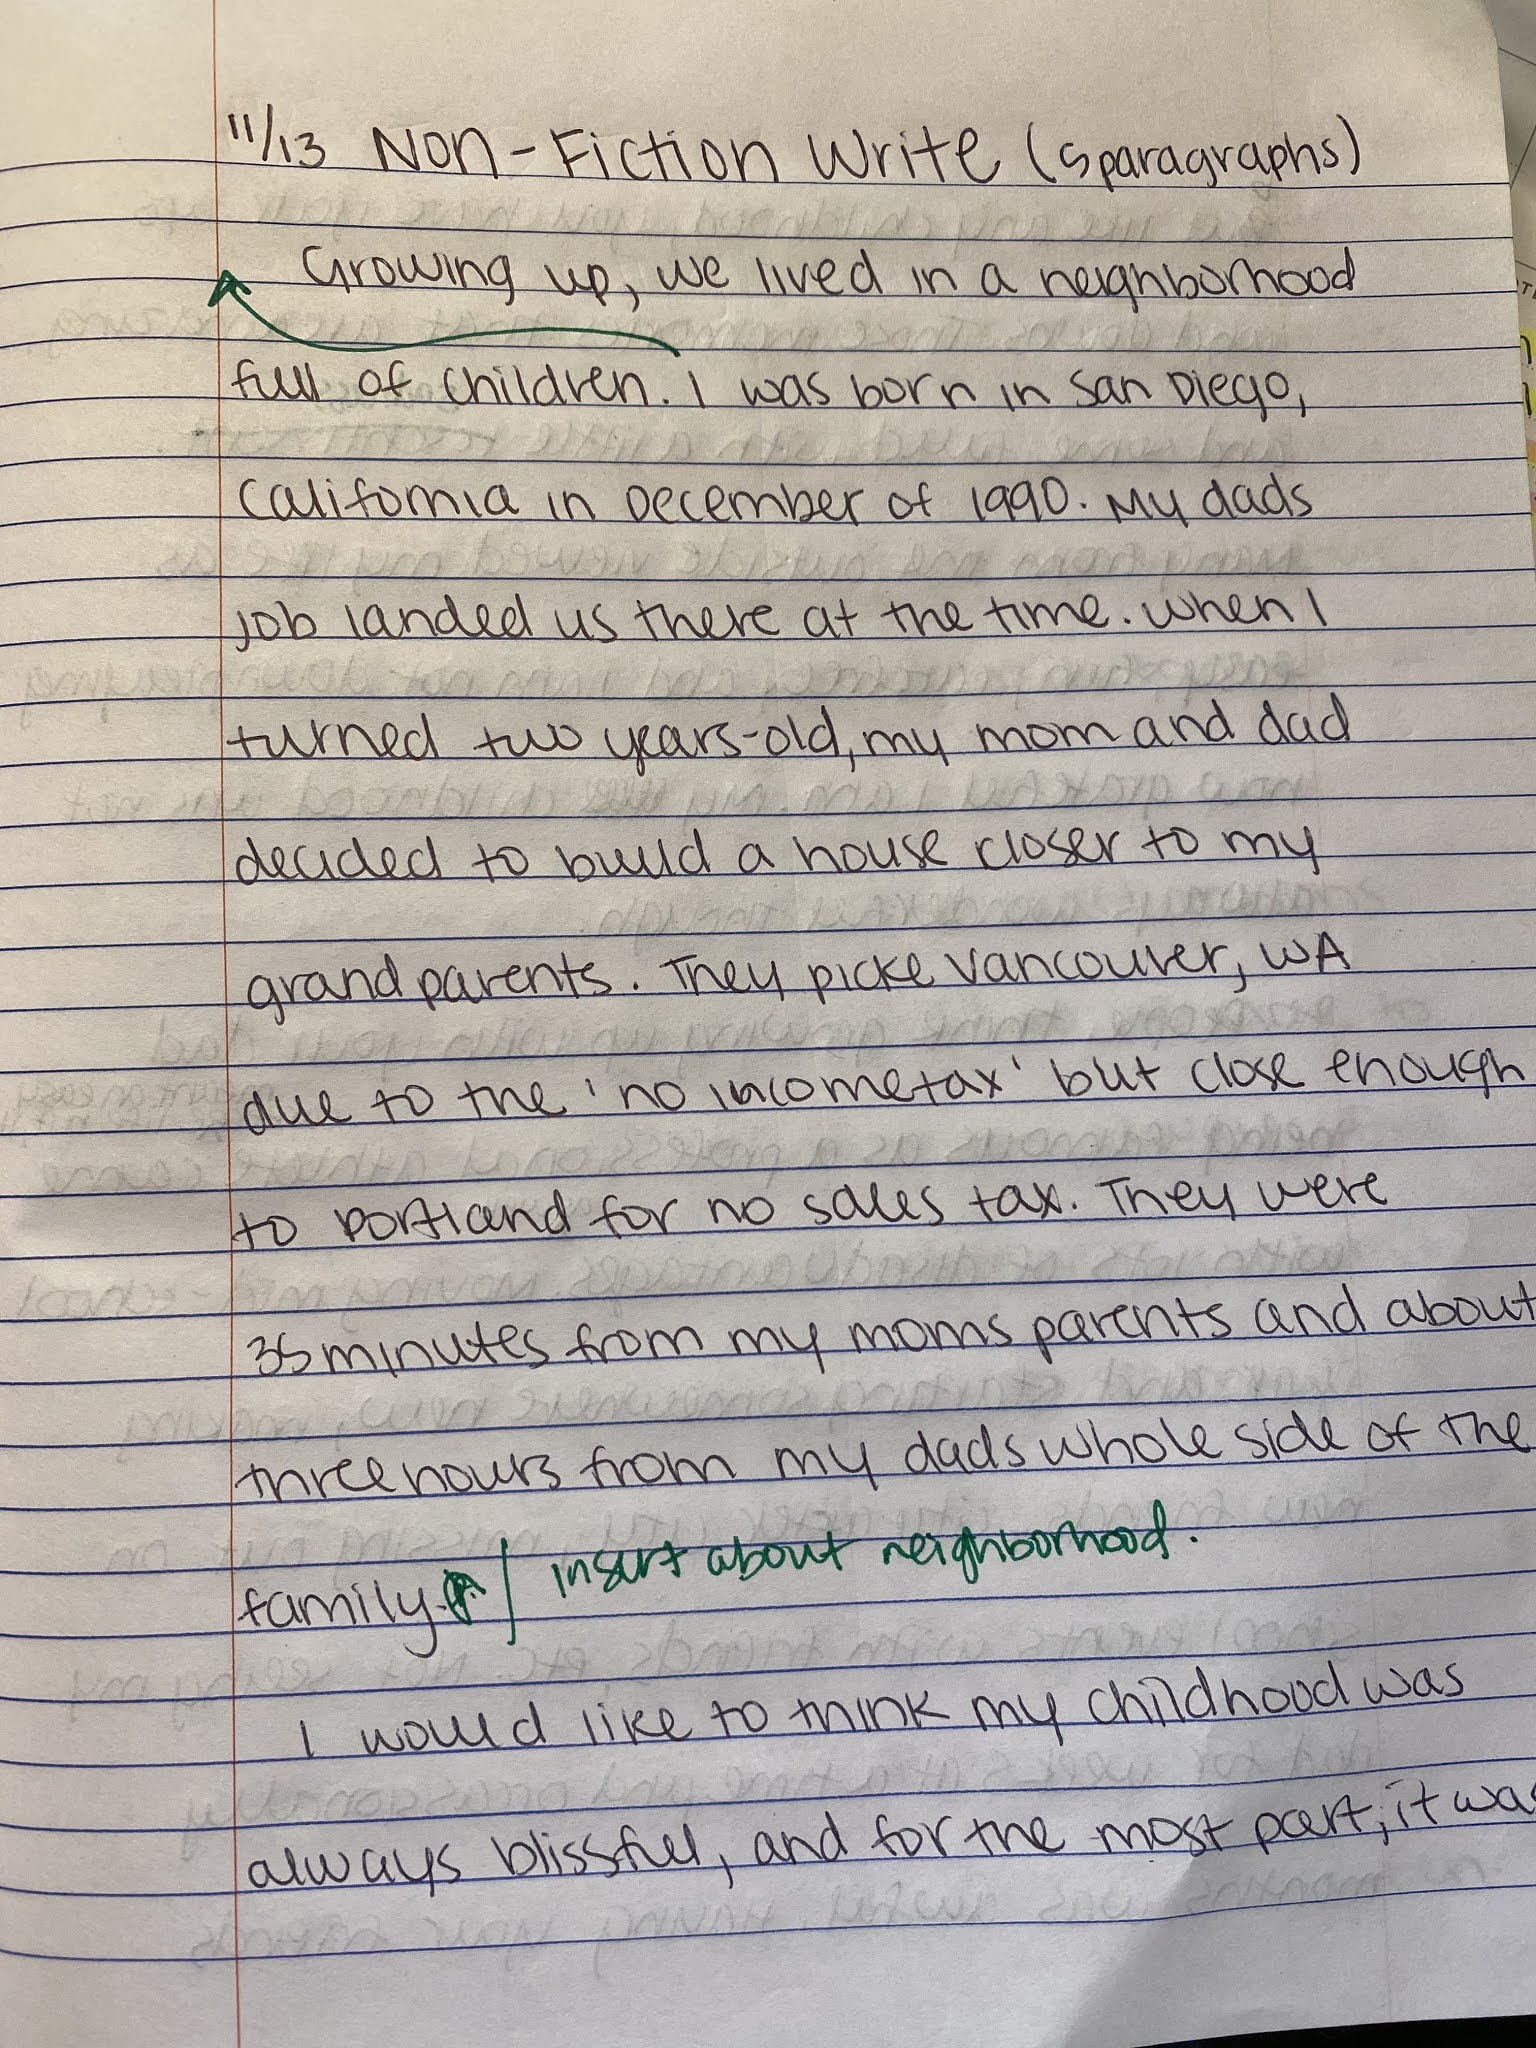 11/13 Non-Fiction Write (5 paragraphs)
Growing up, we lived in a neighborhood
full of children. I was born in San Diego,
California in December of 1990. My dads
job landed us there at the time. When I
turned two years-old, my mom and dad
decided to build a house closer to my
grandparents. They picke Vancouver, WA
due to the 'no income tax' but close enough
to Portland for no sales tax. They were
35 minutes from my moms parents and about
three hours from my dads whole side of the
family. insert about neighborhood.
I would like to think my childhood was
always blissful, and for the most part, it was